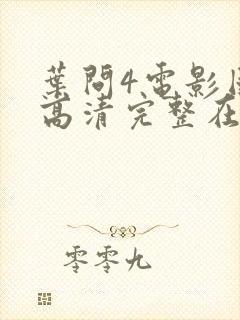 葉問4電影
高清完整在
零零九